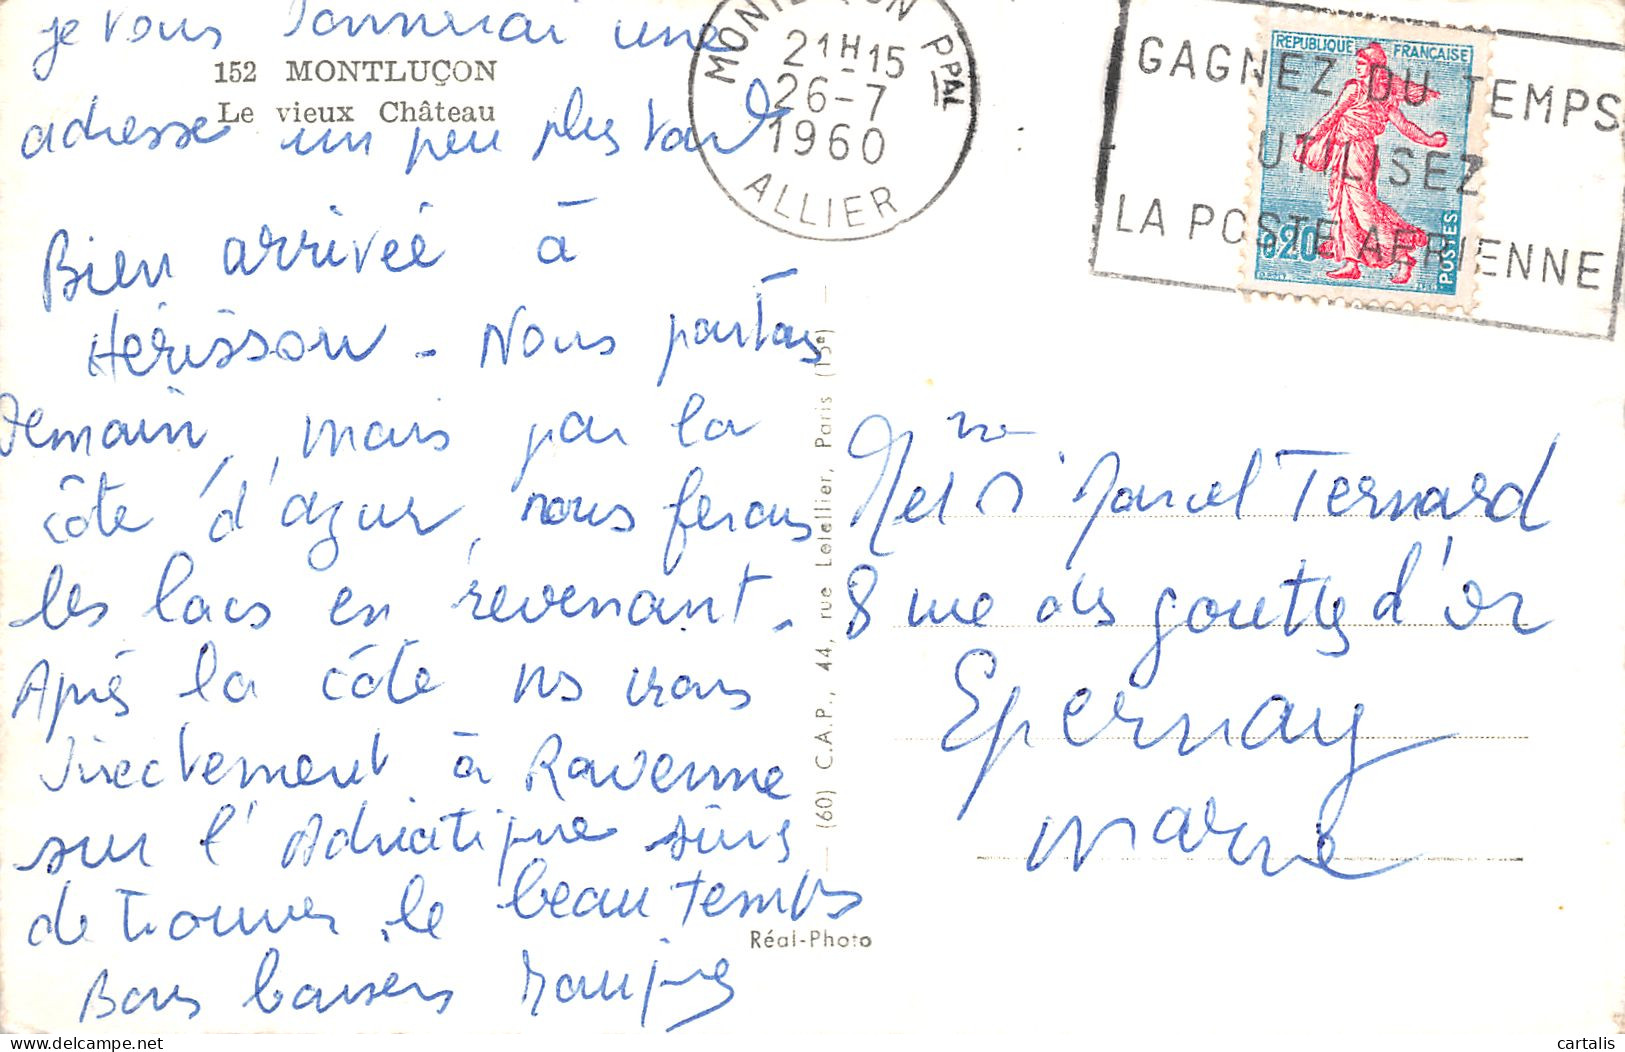 je vous donnerai une
152 MONTLUÇON
Le vieux Château
adresse un peu plus tard
Bien arrivée à
Hérisson - Nous partons
demain, mais par la
côte d'azur, nous ferons
les lacs en revenant.
Après la côte ns irons
directement à Ravenne
sur l'Adriatique sûrs
de trouver le beau temps
Bons baisers
MONTLUÇON PPAL
21H-15
26-7
1960
ALLIER
GAGNEZ DU TEMPS
UTILISEZ
LA POSTE AERIENNE
REPUBLIQUE FRANÇAISE
0,20
POSTES
(60) C.A.P., 44, rue Letellier, Paris (15e)
Réal-Photo
Mr et Mme Marcel Ternard
8 rue des gouttes d'or
Epernay
Marne
cartalis